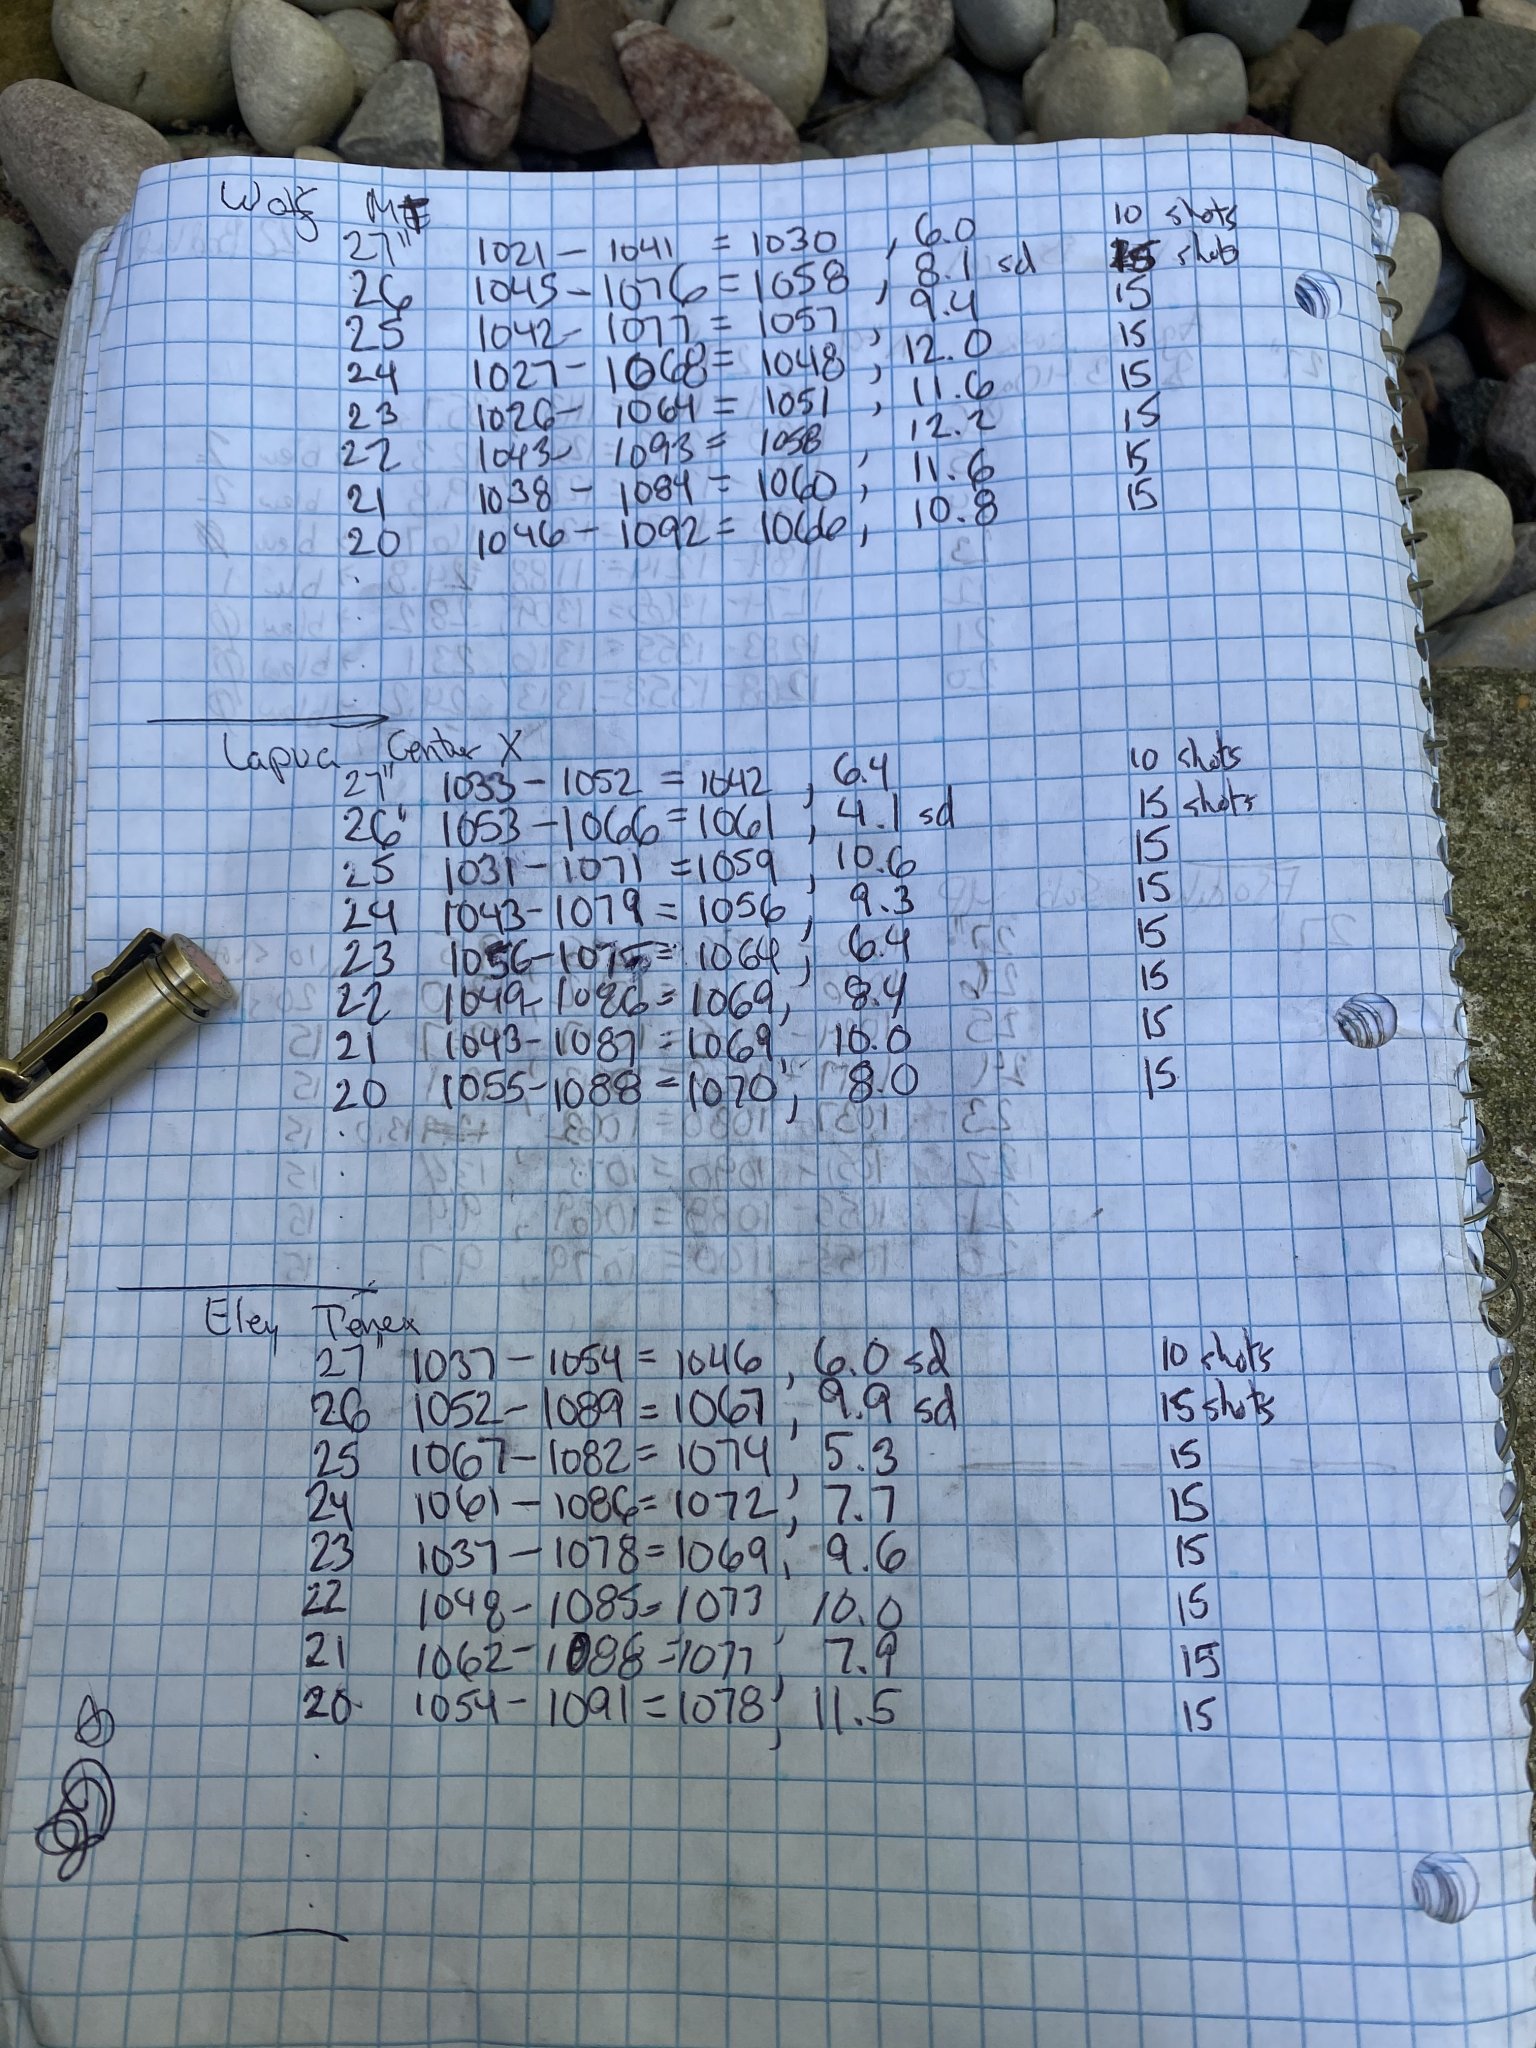 Wolf MT
27" 1021 - 1041 = 1030, 6.0 10 shots
26 1045 - 1076 = 1058, 8.1 sd 15 shots
25 1042 - 1077 = 1057, 9.4 15
24 1027 - 1068 = 1048, 12.0 15
23 1026 - 1064 = 1051, 11.6 15
22 1043 - 1093 = 1058, 12.2 15
21 1038 - 1084 = 1060, 11.6 15
20 1046 - 1092 = 1066, 10.8 15
Lapua Center X
27" 1033 - 1052 = 1042, 6.4 10 shots
26" 1053 - 1066 = 1061, 4.1 sd 15 shots
25 1031 - 1071 = 1059, 10.6 15
24 1043 - 1079 = 1056, 9.3 15
23 1056 - 1075 = 1064, 6.4 15
22 1049 - 1086 = 1069, 8.4 15
21 1043 - 1087 = 1069, 10.0 15
20 1055 - 1088 = 1070, 8.0 15
Eley Tenex
27" 1037 - 1054 = 1046, 6.0 sd 10 shots
26 1052 - 1089 = 1067, 9.9 sd 15 shots
25 1067 - 1082 = 1074, 5.3 15
24 1061 - 1086 = 1072, 7.7 15
23 1037 - 1078 = 1069, 9.6 15
22 1048 - 1085 = 1073, 10.0 15
21 1062 - 1088 = 1077, 7.9 15
20 1054 - 1091 = 1078, 11.5 15